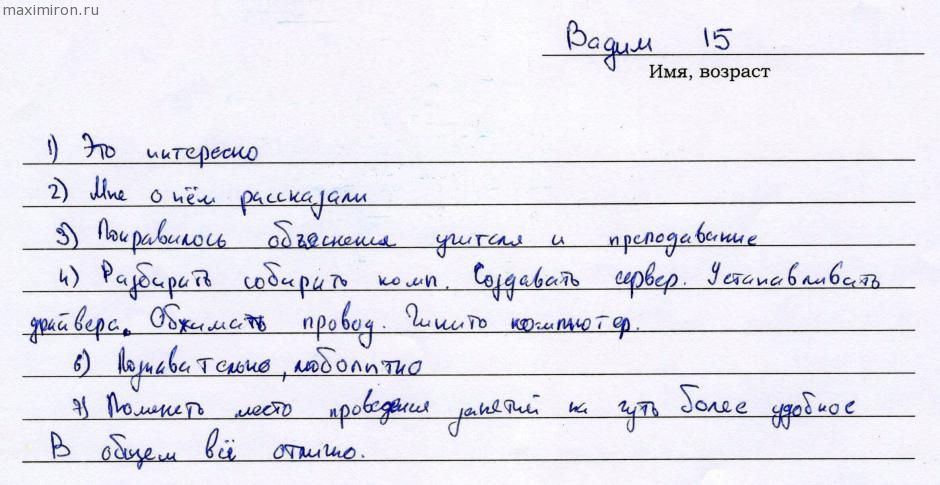 maximiron.ru
Вадим 15
Имя, возраст
1) Это интересно
2) Мне о нём рассказали
3) Понравилось объяснения учителя и преподавание
4) Разбирать собирать комп. Создавать сервер. Устанавливать
драйвера. Обжимать провод. Чинить компьютер.
6) Познавательно, любопытно
7) Поменять место проведения занятий на чуть более удобное
В общем всё отлично.